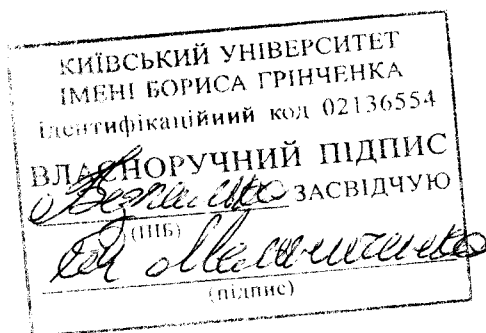 КИЇВСЬКИЙ УНІВЕРСИТЕТ
ІМЕНІ БОРИСА ГРІНЧЕНКА
ідентифікаційний код 02136554
ВЛАСНОРУЧНИЙ ПІДПИС
ЗАСВІДЧУЮ
(ПІБ)
(підпис)